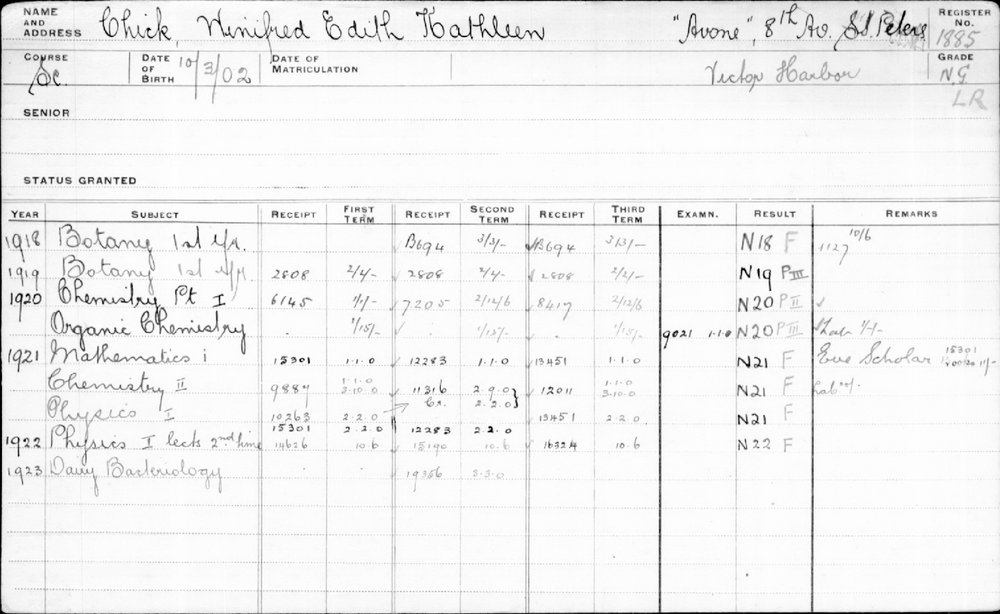 NAME AND ADDRESS Chick, Winifred Edith Kathleen "Avone", 8th Av. St. Peters REGISTER No. 1885
COURSE Sc. DATE OF BIRTH 10/3/02 DATE OF MATRICULATION Victor Harbor GRADE N.G
LR
SENIOR
STATUS GRANTED
YEAR SUBJECT RECEIPT FIRST TERM RECEIPT SECOND TERM RECEIPT THIRD TERM EXAMN. RESULT REMARKS
1918 Botany 1st yr. B694 3/3/- B694 3/3/- N18 F 1127 10/6
1919 Botany 1st yr. 2808 2/4/- 2808 2/4/- 2808 2/2/- N19 P III
1920 Chemistry Pt I 6145 1/1/- 7205 2/12/6 8417 2/12/6 N20 P II
Organic Chemistry 1/15/- 1/15/- 1/15/- 9021 1.1.0 N20 P III
1921 Mathematics i 15301 1.1.0 12283 1.1.0 13451 1.1.0 N21 F Eve Scholar 15301
Chemistry II 9887 1.1.0 3.10.0 11316 2.9.0 12011 1.1.0 3.10.0 N21 F
Physics I 10263 2.2.0 Cr. 2.2.0 13451 2.2.0 N21 F
15301 2.2.0 12283 2.2.0
1922 Physics I lects 2nd time 14626 10.6 15190 10.6 16324 10.6 N22 F
1923 Dairy Bacteriology 19356 3.3.0